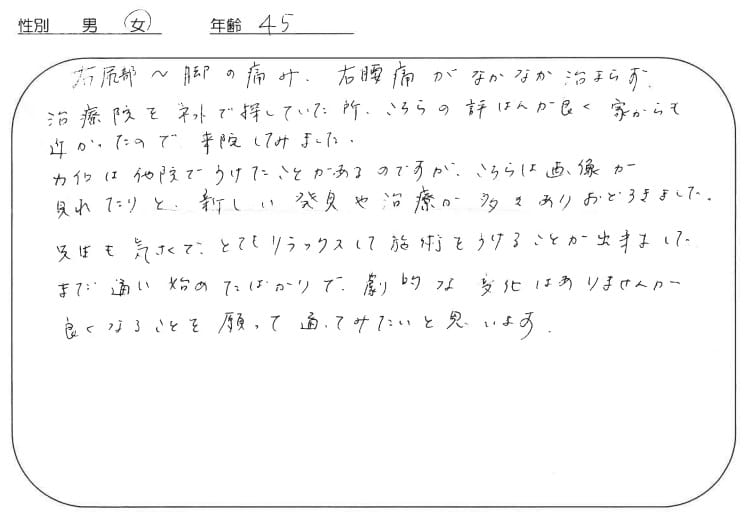 性別 男 女 年齢 45
右尻部〜脚の痛み、右腰痛がなかなか治まらず、
治療院をネットで探していた所、こちらの評ばんが良く家からも
近かったので来院してみました。
カイロは他院でうけたことがあるのですが、こちらは画像が
見れたりと、新しい発見や治療が多々ありおどろきました。
先生も気さくで、とてもリラックスして施術をうけることが出来ました
まだ通い始めたばかりで、劇的な変化はありませんが
良くなることを願って通ってみたいと思います。